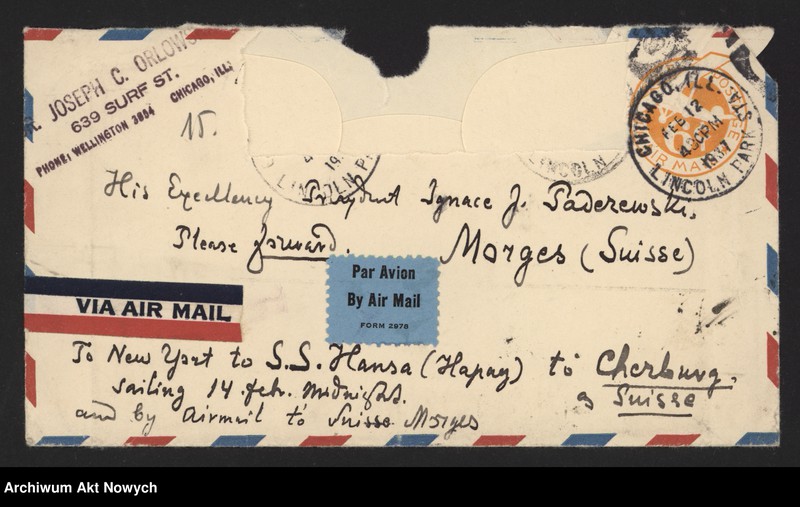 JOSEPH C. ORLOWS
639 SURF ST.
PHONE: WELLINGTON 3854 CHICAGO, ILL.
15.
19
LINCOLN P
LINCOLN
POSTAGE
AIR MAIL
CHICAGO, ILL.
FEB 12
4 30 PM
1937
LINCOLN PARK STA.
His Excellency Präydent Ignace J. Paderewski,
Please forward. Morges (Suisse)
VIA AIR MAIL
Par Avion
By Air Mail
FORM 2978
To New York to S.S. Hansa (Hapag) to Cherburg,
sailing 14 febr. midnight. Suisse
and by Airmail to Suisse Morges
Archiwum Akt Nowych